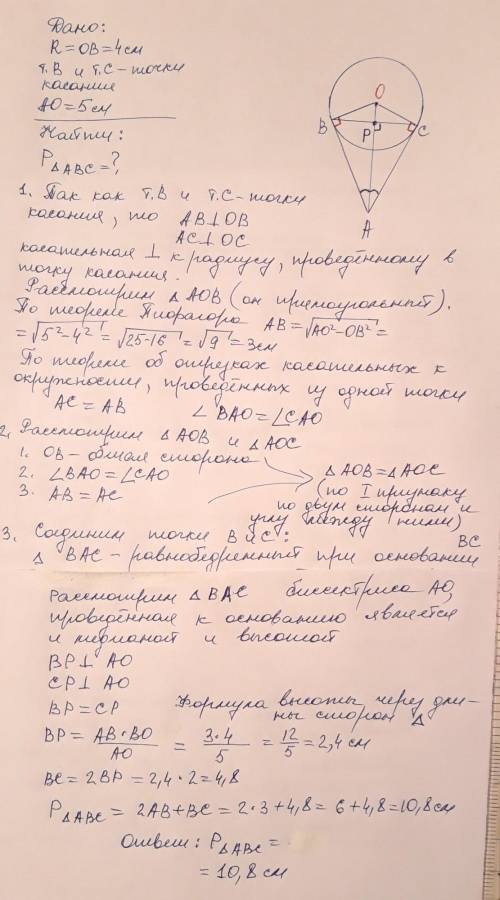 Дано:
R = OB = 4 см
т. В и т. С - точки
касания
АО = 5 см
Найти:
P△ABC = ?,
O
B
P
C
A
1. Так как т. В и т. С - точки
касания, то AB⊥OB
AC⊥OC
касательная ⊥ к радиусу, проведённому в
точку касания.
Рассмотрим △AOB (он прямоугольный).
По теореме Пифагора AB = √AO²-OB² =
= √5²-4² = √25-16 = √9 = 3см
По теореме об отрезках касательных к
окружности, проведённых из одной точки
AC = AB ∠BAO = ∠CAO
2. Рассмотрим △AOB и △AOC
1. OB - общая сторона
2. ∠BAO = ∠CAO
3. AB = AC
△AOB = △AOC
(по I признаку
по двум сторонам и
углу между ними)
3. Соединим точки В и С:
△ BAC - равнобедренный при основании BC
Рассмотрим △BAC биссектриса AO,
проведённая к основанию является
и медианой и высотой
BP⊥AO
CP⊥AO
BP = CP
Формула высоты через дли-
ны сторон △
BP = AB·BO / AO = 3·4 / 5 = 12 / 5 = 2,4 см
BC = 2BP = 2,4·2 = 4,8
P△ABC = 2AB + BC = 2·3 + 4,8 = 6 + 4,8 = 10,8см
Ответ: P△ABC =
= 10,8 см